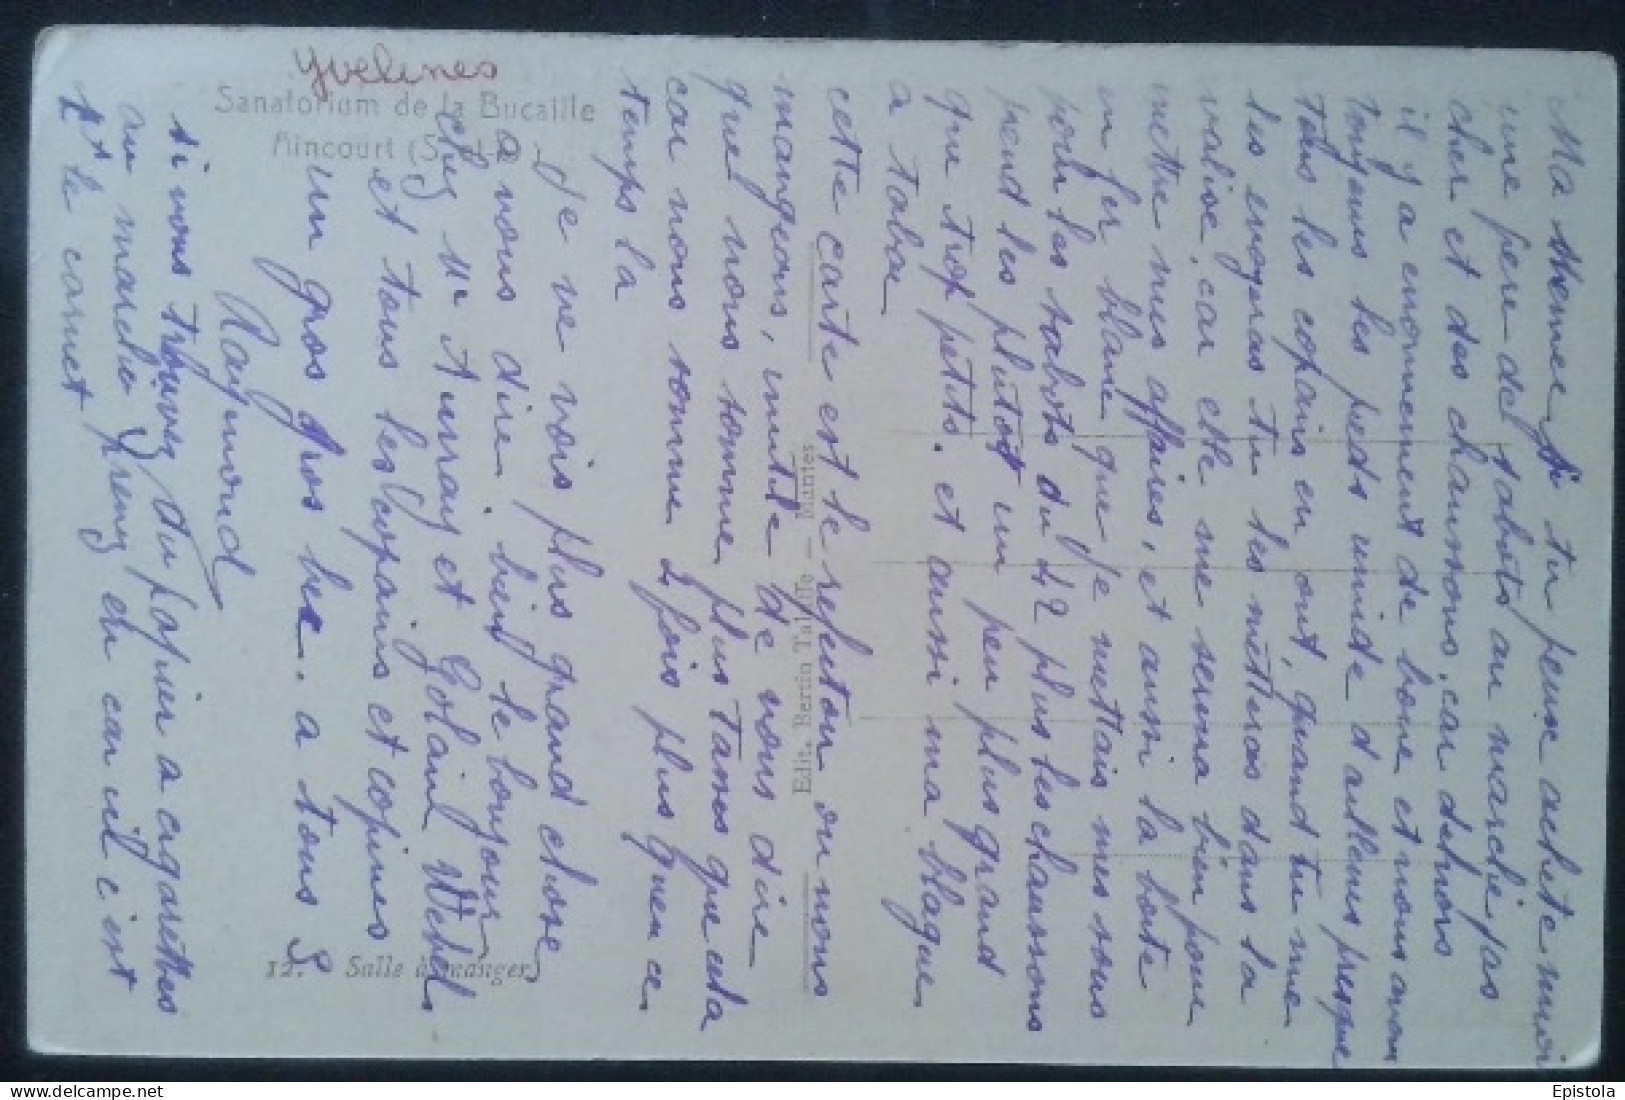 Yvelines
Sanatorium de la Bucaille
Aincourt (S.-et-O.)
12. Salle à manger
Edit. Bertin Taluffe — Mantes
Ma Memee si tu peuse achete mnoi
une pere de sabots au marche pas
cher et des chaussons, car dehors
il y a enormement de boue et nous avons
toujours les pieds umide d'ailleurs presque
tous les copains en ont, quand tu me
les enveras tu les metteras dans la
valise, car elle me serrira bien pour
mettre mes affaires, et aussi la boite
en fer blanc que je mettais mes sous
pour les sabots du 42 plus les chaussons
prend les plutot un peu plus grand
que trop petits. et aussi ma blague
a tabac
cette carte est le refectoir ou nous
mangeons, inutile de vous dire
que nous somme plus tasses que cela
car nous somme 2 fois plus quen ce
temps la
Je ne vois plus grand chose
a vous dire. bien le bonjour
chez Mr Aurray et Golain Webel
et tous les copains et copines
un gros gros bec. a tous 5
Raymond
si vous trouvez du papier a cigarettes
au marche prenez en car ici c'est
1t le carnet
Epistola